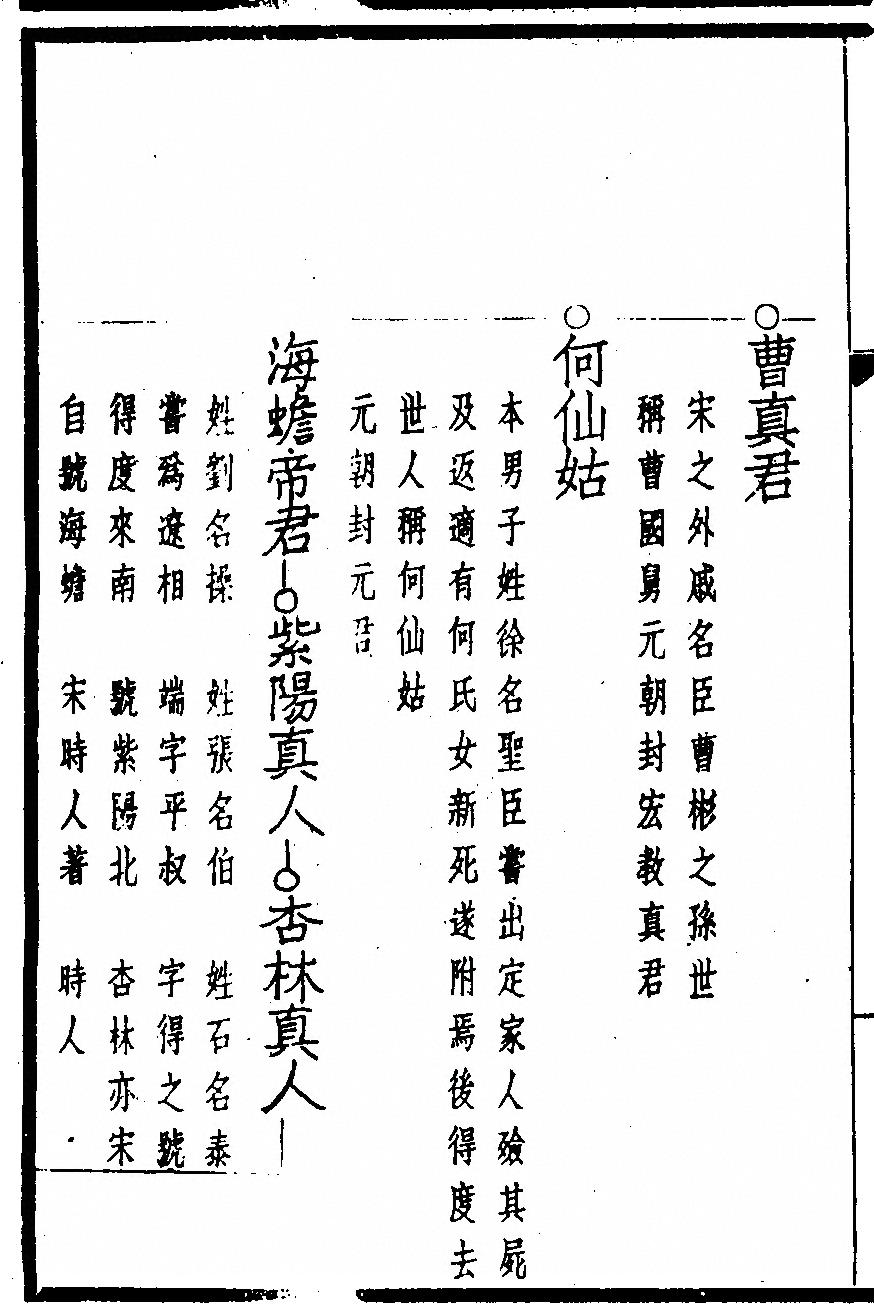 曹真君
宋之外戚名臣曹彬之孫世
稱曹國舅元朝封宏教真君
何仙姑
本男子姓徐名聖臣嘗出定家人殮其屍
及返適有何氏女新死遂附焉後得度去
世人稱何仙姑
元朝封元
海蟾帝君
姓劉名操
嘗爲遼相
得度來南
自號海蟾
紫陽真人
姓張名伯
端字平叔
號紫陽北
宋時人著
杏林真人
姓石名泰
字得之號
杏林亦宋
時人